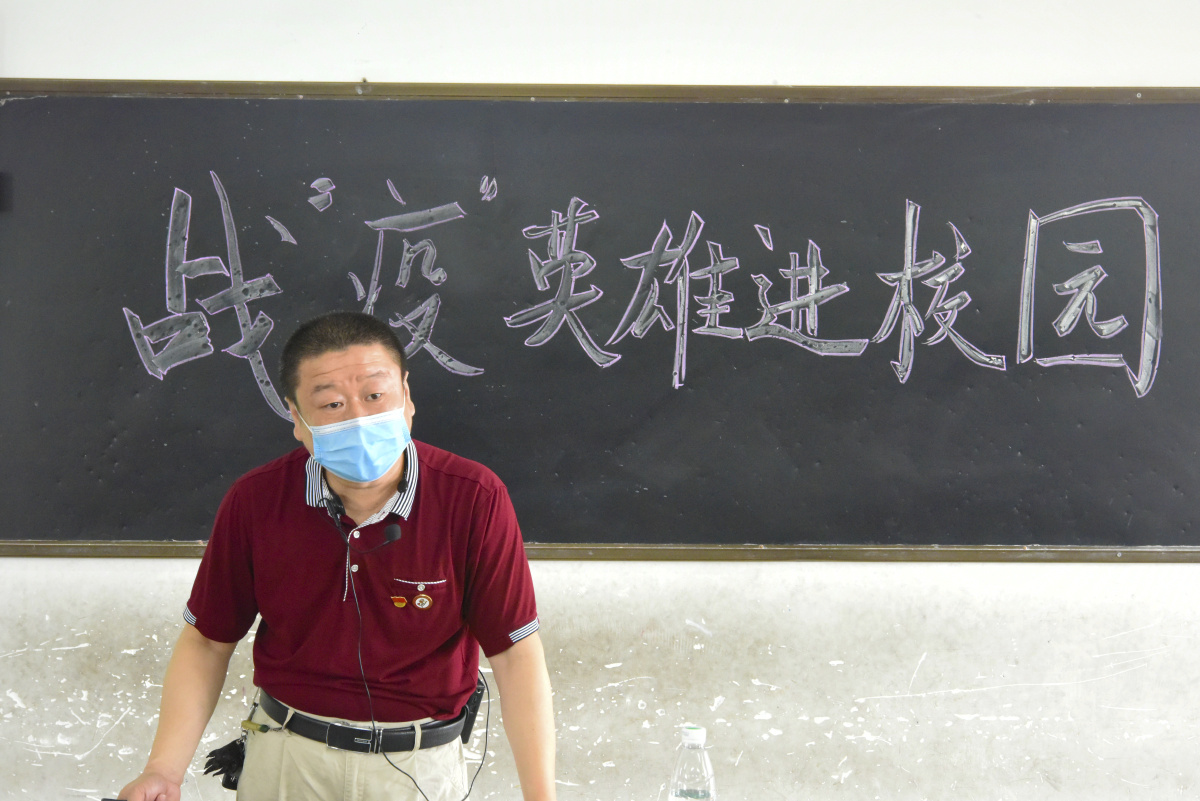 战“疫”英雄进校园